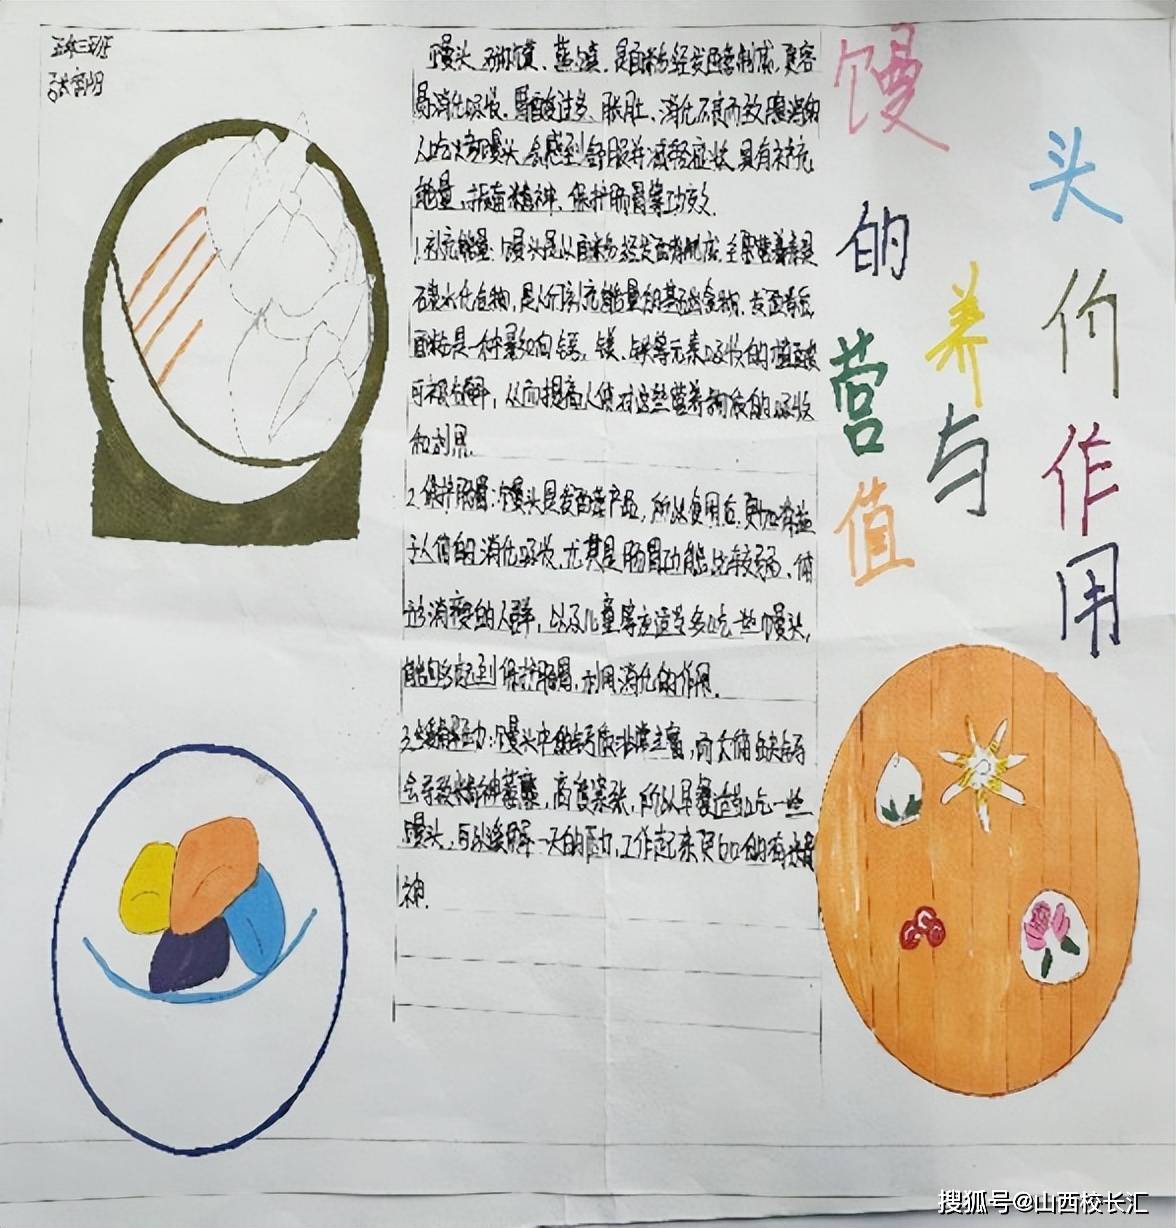 五年三班
馒
头
的
养
价
营
与
作
值
用
馒头、又称馍、蒸馍，是面粉经发酵蒸制成，更容
易消化吸收。胃酸过多、胀肚、消化不良而致腹泻的
人吃烤馒头，会感到舒服并减轻症状，具有补充
能量，振奋精神，保护肠胃等功效。
1.补充能量：馒头是以面粉经发面蒸制成，主要营养素是
碳水化合物，是人们补充能量的基础食物，发面蒸后，
面粉是一种影响钙，镁、铁等元素吸收的植酸
可被分解，从而提高人体对这些营养物质的吸收
和利用。
2.保护肠胃：馒头是发面蒸产品，所以食用后，更加有益
于人体的消化吸收，尤其是肠胃功能比较弱、体
形消瘦的人群，以及儿童等应适当多吃一些馒头，
能够起到保护肠胃，利用消化的作用。
3.缓解压力：馒头中的钙质非常丰富，而人体缺钙
会导致精神萎靡，高度紧张，所以早餐适当吃一些
馒头，可以缓解一天的压力，工作起来更加的有精
神。
搜狐号@山西校长汇